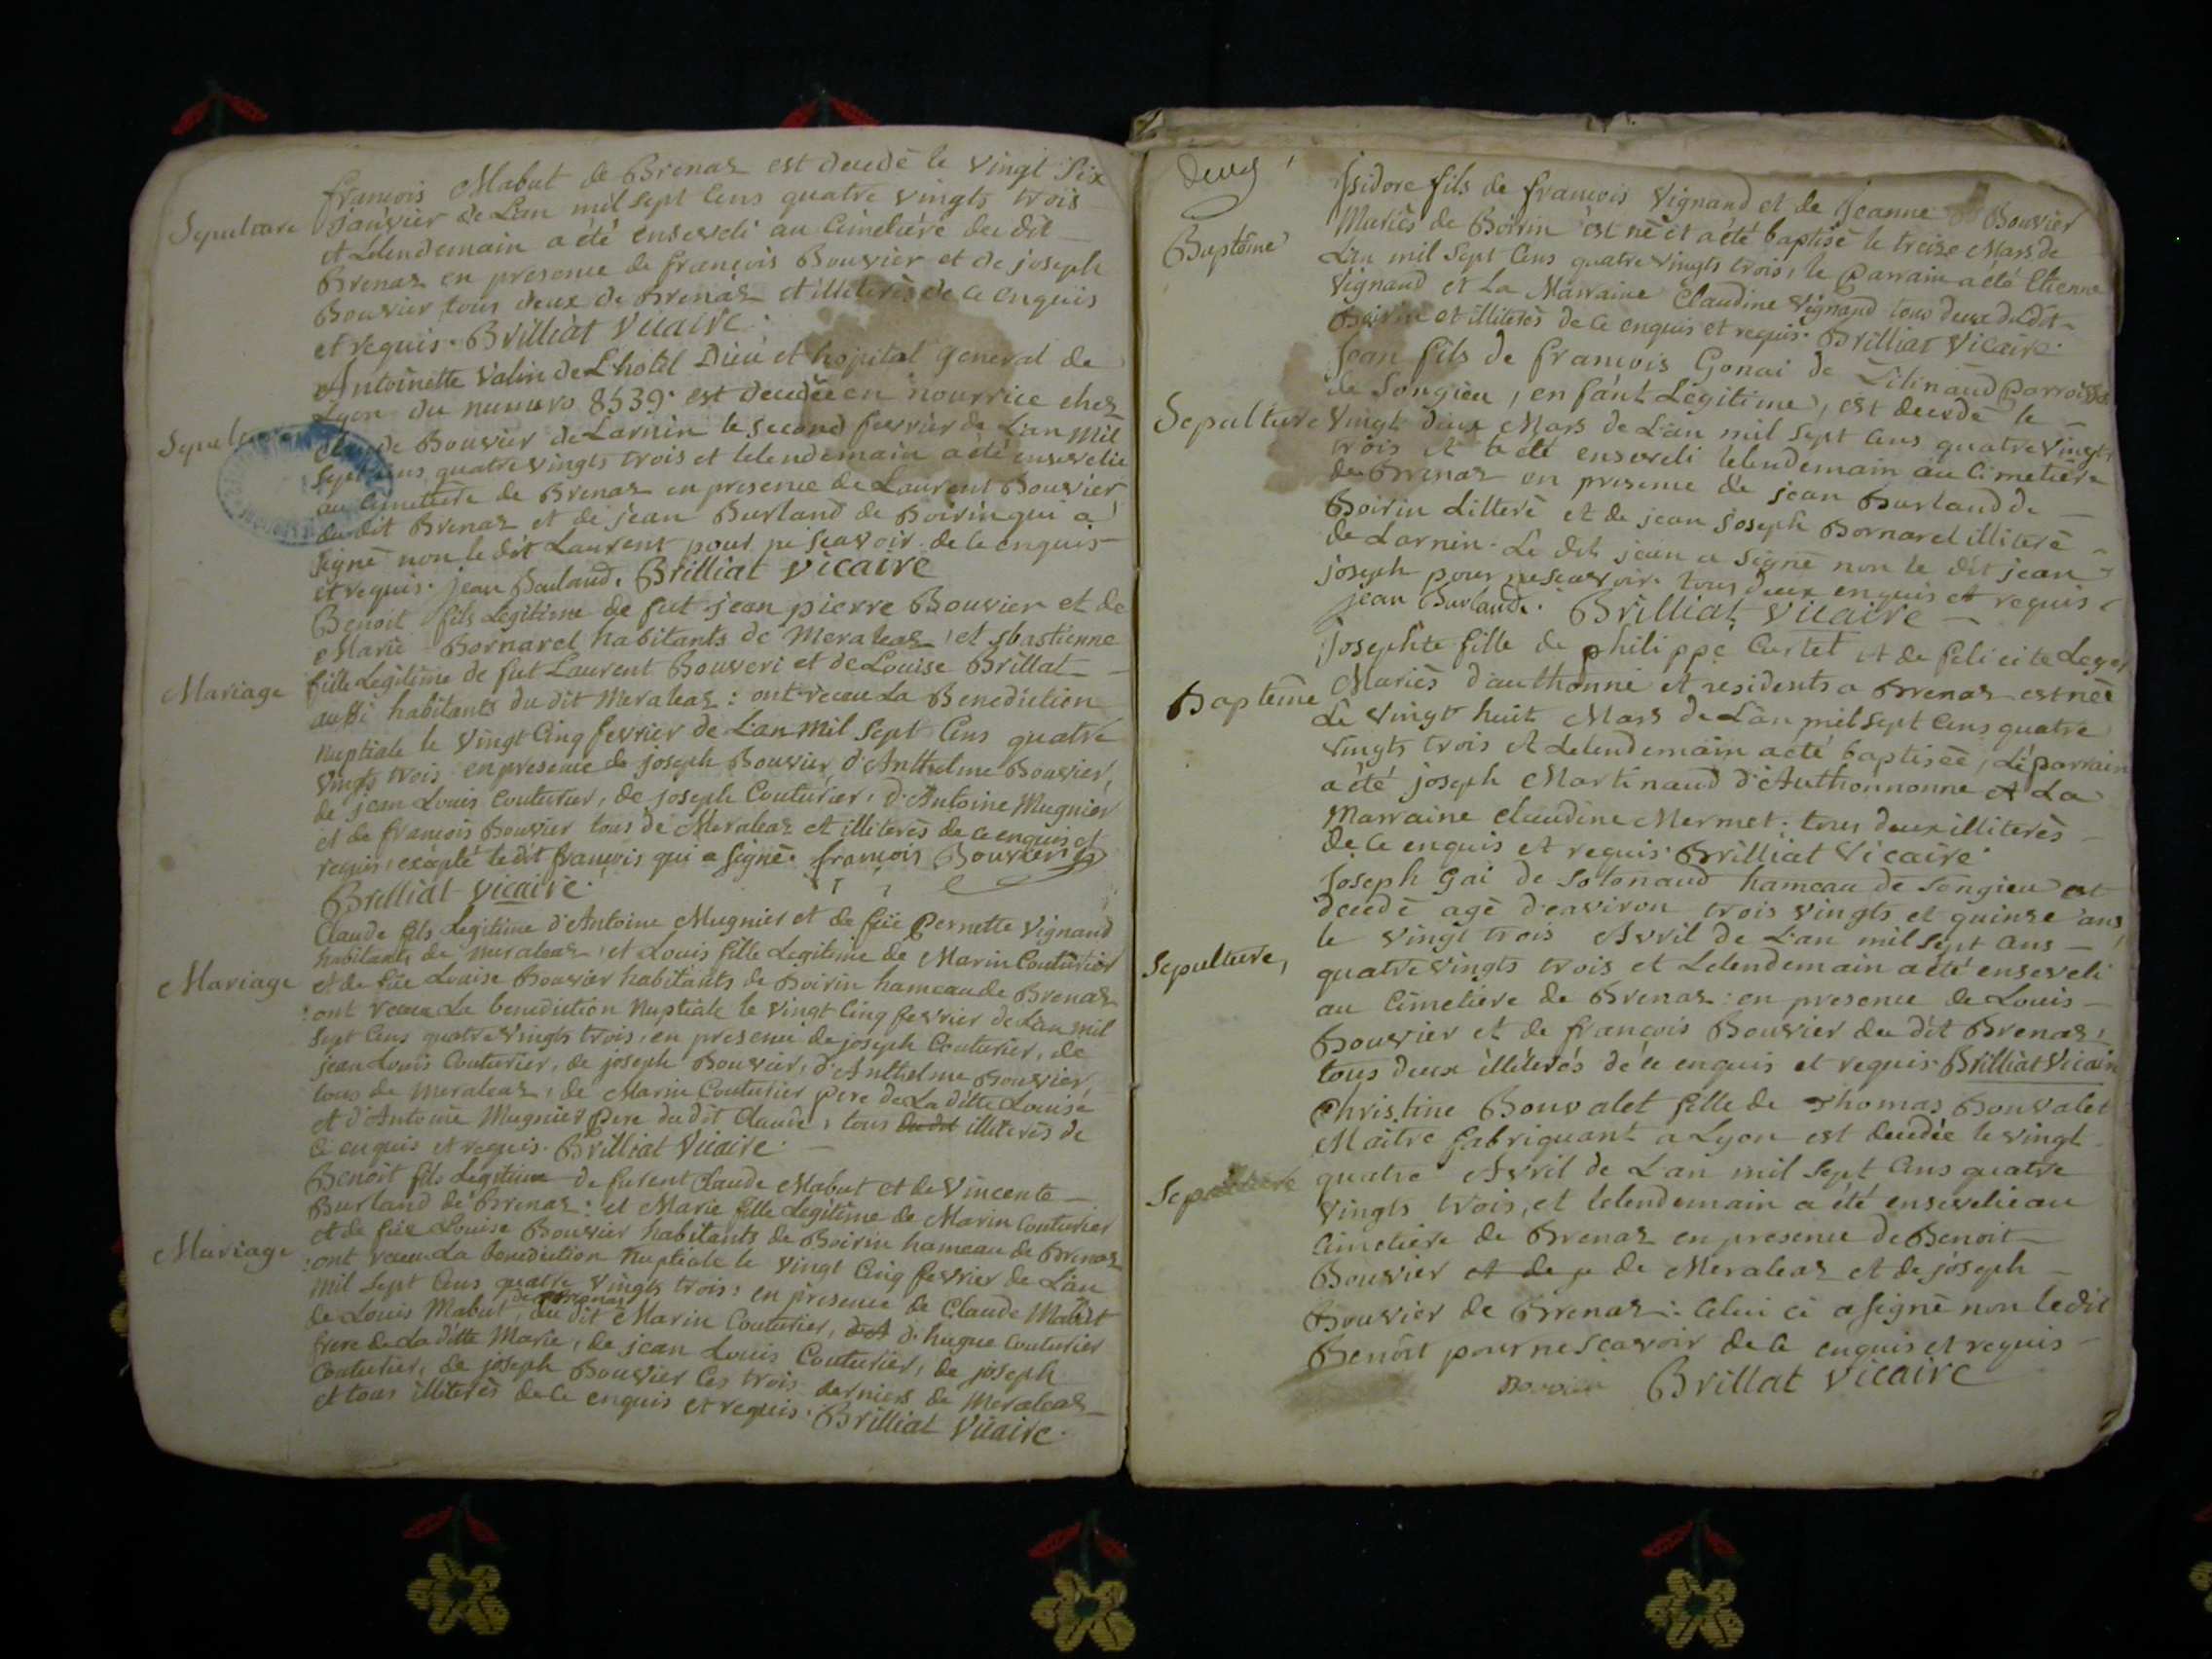 Sepulture
françois Mabut de Brenaz est decedé le vingt six
janvier de L'an mil sept cens quatre vingts trois
et Lelendemain a été enseveli au Cimetiére du dit
Brenaz en presence de françois Bouvier et de joseph
Bouvier tous deux de Brenaz et illiterés de ce enquis
et requis. Brilliat Vicaire.
Sepult
Antoinette Valin de L'hotel Dieu et hopital general de
Lyon du numero 8539. est decedée en nourrice chez
Bouvier de Larnin le second fevrier de L'an mil
sept cens quatre vingts trois et lelendemain a été ensevelie
au Cimettére de Brenaz en presence de Laurent Bouvier
du dit Brenaz et de jean Burland de Boirin qui a
signé non le dit Laurent pour ne scavoir de ce enquis
et requis. jean Baulaud. Brilliat vicaire
Mariage
Benoit fils Legitime de fut jean pierre Bouvier et de
Marie Bornarel habitants de Meraleaz, et sbastienne
fille Legitime de fut Laurent Bouveri et de Louise Brillat
aussi habitants du dit Meraleaz : ont receu La Benediction
Nuptiale le vingt Cinq fevrier de L'an mil sept Cens quatre
vingts trois en presence de joseph Bouvier, d'Anthelme Bouvier,
de jean Louis Couturier, de joseph Couturier, d'Antoine Mugnier
et de françois Bouvier tous de Meraleaz et illiterés de ce enquis et
requis, excepté le dit françois qui a signé. françois Bouvier
Brilliat vicaire.
Mariage
Claude fils Legitime d'Antoine Mugnier et de füe Pernette Vignand
habitants de meraleaz, et Louis fille Legitime de Marin Couturier
et de füe Louise Bouvier habitants de Boirin hameau de Brenaz
: ont receu La benediction Nuptiale le vingt Cinq fevrier de L'an mil
sept Cens quatre vingts trois, en presence de joseph Couturier, de
jean Louis Couturier, de joseph Bouvier, d'Anthelme Bouvier,
tous de meraleaz, de Marin Couturier pere de La ditte Louise
et d'Antoine Mugnier pere du dit Claude, tous du dit illiterés de
ce enquis et requis. Brilliat Vicaire.
Mariage
Benoit fils Legitime de furent Claude Mabut et de Vincente
Burland de Brenaz : et Marie fille Legitime de Marin Couturier
et de füe Louise Bouvier habitants de Boirin hameau de Brenaz
: ont receu La benediction Nuptiale le vingt Cinq fevrier de L'an
mil sept Cens quatre vingts trois : en presence de Claude Mabut
de Louis Mabut, de Brenaz du dit Marin Couturier, d'hugue Couturier
frere de La ditte Marie, de jean Louis Couturier, de joseph
Couturier, de joseph Bouvier les trois derniers de Meraleaz
et tous illiterés de ce enquis et requis. Brilliat Vicaire.
deux
Baptême
Isidore fils de françois Vignand et de Jeanne Bouvier
Mariés de Boirin est né et a été baptisé le treize Mars de
L'an mil sept Cens quatre vingts trois, le Parrain a été Etienne
Vignand et La Marraine Claudine Vignand tous deux du dit
Boirin et illiterés de ce enquis et requis. Brilliat Vicaire.
Sepulture
Jean fils de françois Gonai de Lilinaud Parroisse
de Songieu, enfant Légitime, est decedé le
vingt deux Mars de L'an mil sept Cens quatre vingts
trois et a été enseveli lelendemain au Cimetière
de Brenaz en presence de jean Burland de
Boirin Litteré et de jean joseph Bornarel illiteré
de Lornin. Le dit jean a signé non le dit jean
joseph pour ne scavoir. tous deux enquis et requis.
jean Burlaud. Brilliat vicaire
Baptême
Josephte fille de philippe Curtet et de felicite Leger
Mariés d'authonne et residents a Brenaz est née
Le vingt huit Mars de L'an mil sept Cens quatre
vingts trois et Lelendemain a été baptisée, Le parrain
a été joseph Martinaud d'Authonnonne et La
Marraine Claudine Mermet. tous deux illiterés
de ce enquis et requis. Brilliat Vicaire.
Sepulture,
Joseph Gai de Sotonaud hameau de Songieu est
decedé agé d'environ trois vingts et quinze ans,
le vingt trois Avril de L'an mil sept Cens
quatre vingts trois et Lelendemain a été enseveli
au Cimetiére de Brenaz : en presence de Louis
Bouvier et de françois Bouvier du dit Brenaz,
tous deux illiterés de ce enquis et requis Brilliat Vicaire
Sepulture
Christine Bonvalet fille de Thomas Bonvalet
Maître fabriquant a Lyon est decedée le vingt
quatre Avril de L'an mil sept Cens quatre
vingts trois, et lelendemain a été ensevelie au
Cimetiére de Brenaz en presence de Benoit
Bouvier et de j de Meraleaz et de joseph
Bouvier de Brenaz : Celui ci a signé non le dit
Benoit pour ne scavoir de ce enquis et requis
Bouvier Brillat Vicaire